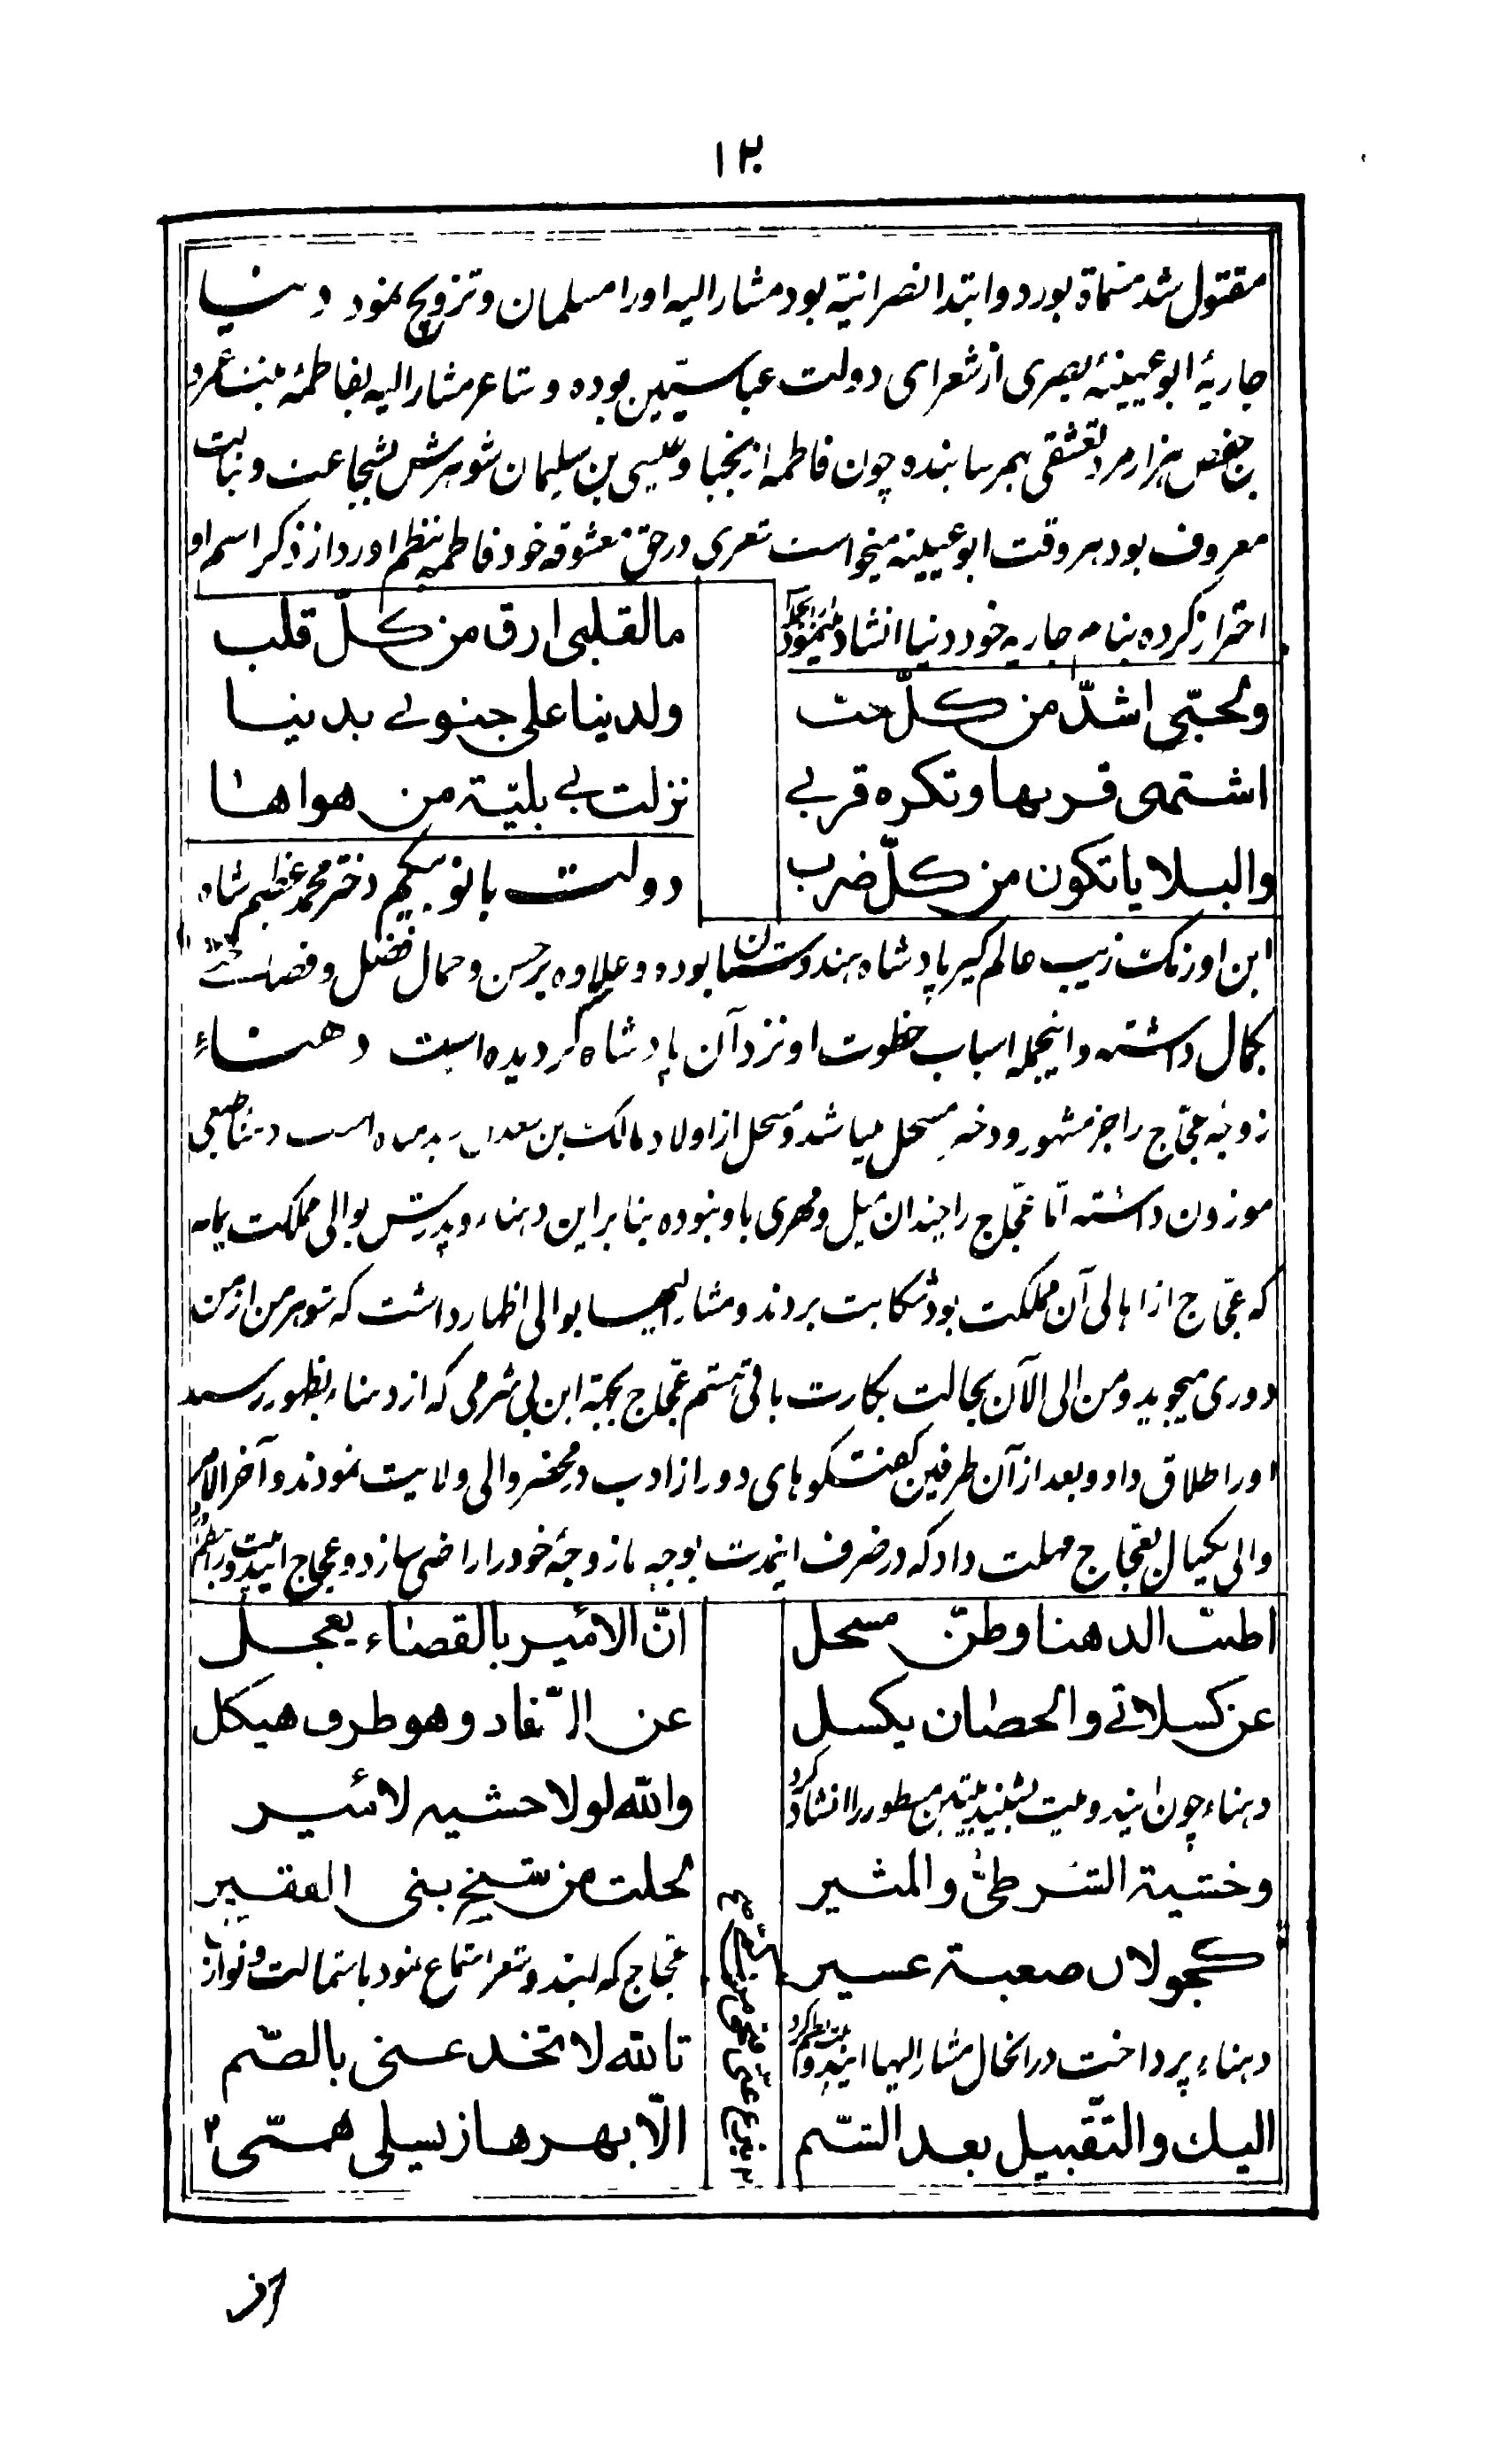 ۱۲۰
مقتول شد مسماة بود و ابتدا نصرانیّة بود مشارالیه او را مسلمان و تزویج نمود دنیا
جاریهٔ ابوعیینهٔ بصری از شعرای دولت عباسیّین بوده و شاعر مشارالیه بفاطمهٔ بنت عمرو
بن حفص هزارمرد تعشقی بهم رسانیده و چون فاطمه از نجبا و عیسی بن سلیمان شوهرش بشجاعت و نبالت
معروف بود هر وقت ابوعیینه میخواست شعری در حق معشوقه خود فاطمه بنظم اورد از ذکر اسم او
احتراز کرده بنام جاریه خود دنیا انشاد مینمود
مالقلبی ارق من کلّ قلب
ولحبّی اشدّ من کلّ حبّ
ولدنیا علی جنونی بدنیا
اشتهی قربها و تکره قربی
نزلت بی بلیّة من هواها
والبلایا تکون من کلّ ضرب
دولت بانو بیگم دختر محمد عظیم شاه
ابن اورنگ زیب عالم گیر پادشاه هندوستان بوده و علاوه بر حسن و جمال فضل و فصاحتی
بکمال داشته و اینجمله اسباب حظوت او نزد آن پادشاه گردیده است دهناء
زوجهٔ عجّاج راجز مشهور و دختر مسحل میباشد و مسحل از اولاد مالک بن سعد بن زید مناة است دهنا طبعی
موزون داشته امّا عجّاج را چندان میل و مهری باو نبوده بنابراین دهناء و پدرش بوالی مملکت یمامه
که عجّاج از اهالی آن مملکت بود شکایت بردند و مشارالیها بوالی اظهار داشت که شوهر من از من
دوری میجوید و من الی الآن بحالت بکارت باقی هستم عجّاج بجهة این بی شرمی که از دهناء بظهور رسید
او را طلاق داد و بعد از آن طرفین گفتگوهای دور از ادب در محضر والی ولایت نمودند و آخر الامر
والی یکسال بعجاج مهلت داد که در ظرف اینمدت بوجهی زوجهٔ خود را راضی سازد و عجاج این دو بیت را بنظم آورد
اظنّت الدهنا وظنّ مسحل
انّ الامیر بالقضاء یعجل
عن کسلاتی والحصان یکسل
عن السّفاد وهو طرف هیکل
دهناء چون ایندو بیت بشنید بیتین مسطور را انشاد کرد
والله لولا خشیة لامیر
وخشیة الشرطیّ والمثیر
لجلت من شیخ بنی الفقیر
کجولان صعبة عسیر
عجاج که ایندو شعر استماع نمود باستمالت و نوازش
دهناء پرداخت در انحال مشارالیها ایندو بیت نظم کرد
تالله لا تخدعنی بالضّم
الیک والتّقبیل بعد الشّم
الّا بهزهاز یسلی همّی ۲
۲ ینزع عنّی
از